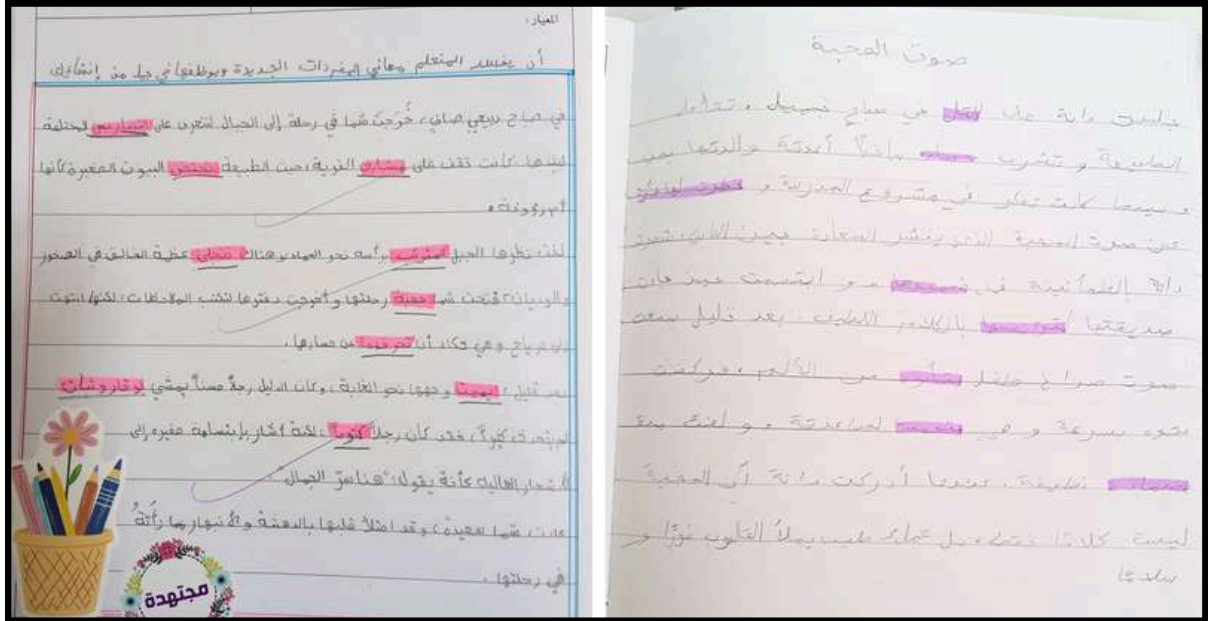 المعيار:
أن يفسر المتعلم معاني المفردات الجديدة ويوظفها في جمل من إنشائه
في صباح ربيعي صافٍ، خرجت شما في رحلة إلى الجبال لتتعرف على التضاريس المختلفة
لبلدها كانت تقف على مشارف القرية، حيث الطبيعة تحتضن البيوت الصغيرة كأنها
أم رؤوفة.
لفت نظرها الجبل المشرئب برأسه نحو السماء وهناك تتجلى عظمة الخالق في الصخور
والوديان، فتحت شما جعبة رحلتها وأخرجت دفترها لتكتب الملاحظات، لكنها انتبهت
رياح وهي تكاد أن تحرفهما عن مسارها.
بعد قليل، يممت وجهها نحو الغابة، وكان الدليل رجلاً مسناً يمشي بوقار وثبات
لم يتحدث كثيراً، فقد كان رجلاً كتوماً، لكنه أشار بإبتسامة صغيره إلى
الأشجار العاليه كأنة يقول: "هنا سرّ الجمال".
كانت شما سعيدة، وقد امتلأ قلبها بالدهشة والأنبهار بما رأتهُ
في رحلتها.
مجتهدة
صوت المحبة
جلست دانة على التل في صباح جميل، تتأمل
الطبيعة وتشرب دافئًا أعدتة والدتها
وبينما كانت تفكر في مشروع المدرسة و
عن صوت المحبة الذي ينشر السعادة بين الناس، شعرت
دانة بالطمأنينة في و ابتسمت حين جاءت
صديقتها بالكلام اللطيف. بعد قليل سمعت
صوت صراخ طفل من الألم، فركضت
نحوه بسرعة و هي لمساعدتة، و لفت يده
نظيفة. عندها أدركت دانة أن المحبة
ليست كلامًا فقط، بل عملٌ طيب يملأ القلوب نورًا و
سلامًا